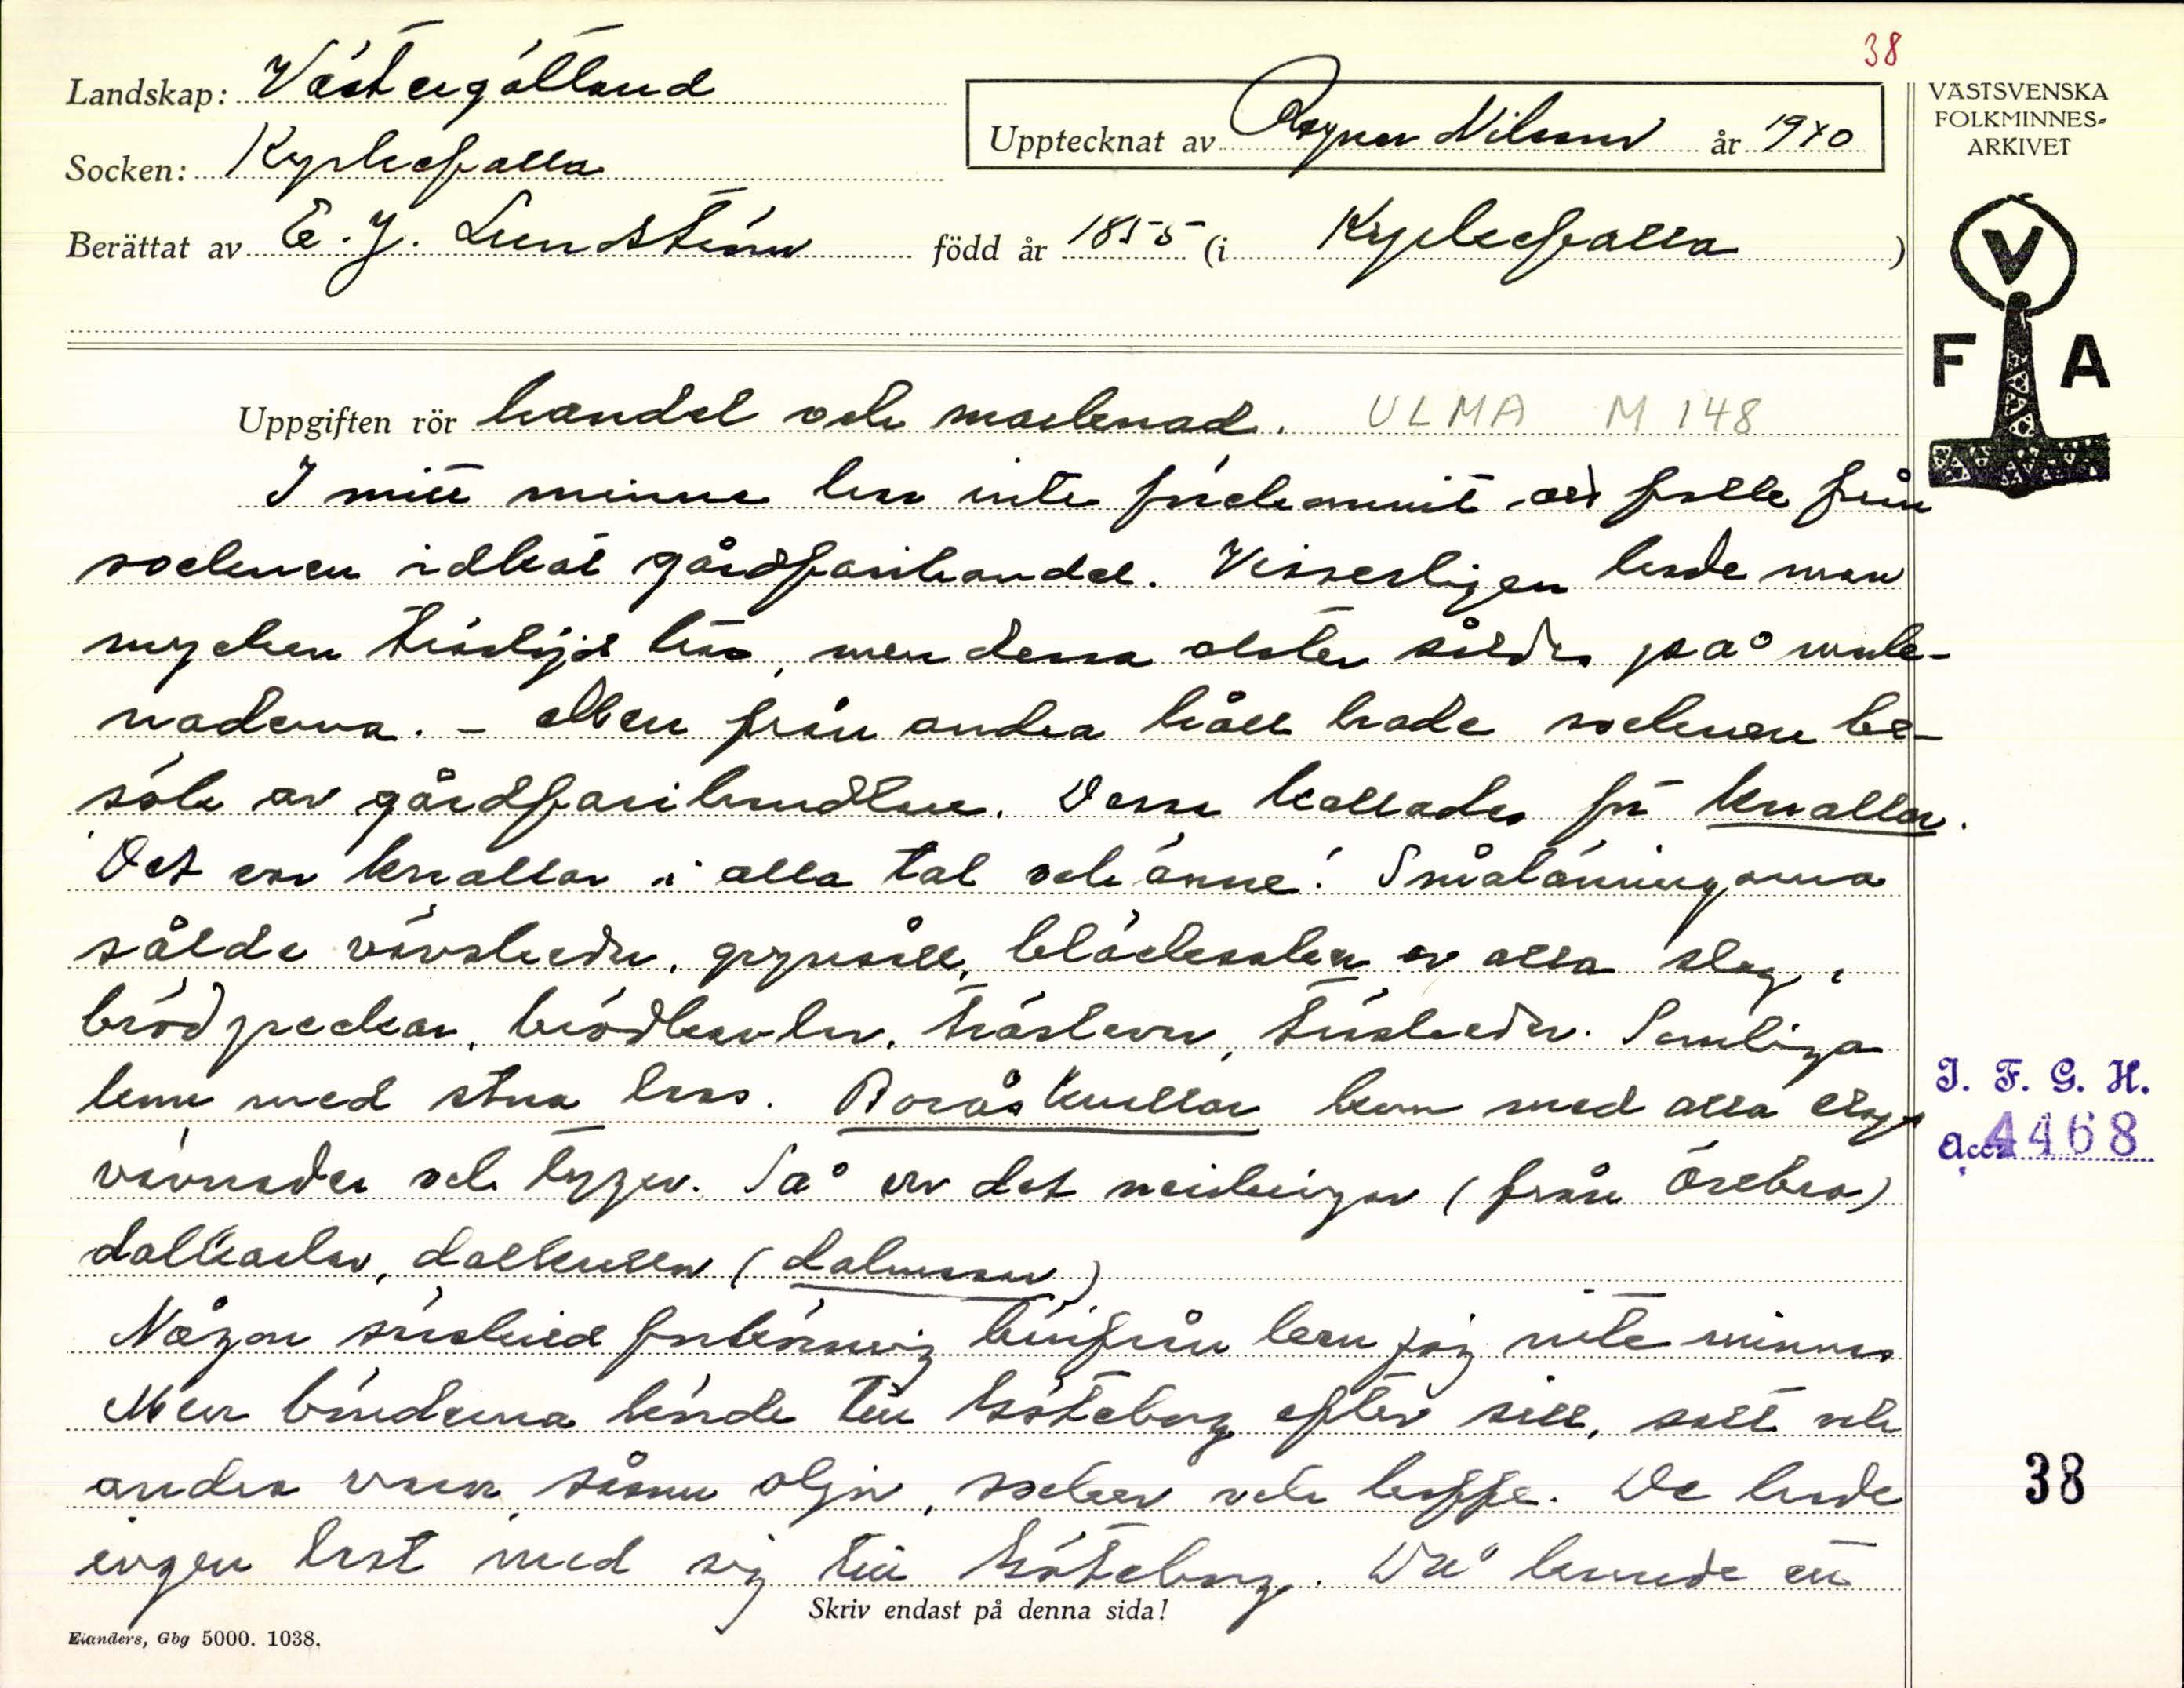 38
Landskap: Västergötland
Upptecknat av Ragnar Nilsson år 1940
VÄSTSVENSKA
FOLKMINNES-
ARKIVET
Socken: Kyrkefalla
Berättat av E. J. Lundström född år 1855 (i Kyrkefalla)
V
F A
Uppgiften rör handel och marknad. ULMA M 148
I mitt minne har inte förekommit att folk från
socknen idkat gårdfarihandel. Visserligen hade man
mycken träslöjd här, men dessa alster såldes på mark-
naderna. - Men från andra håll hade socknen be-
sök av gårdfarihandlare. Dessa kallades för knallar.
Det var knallar i alla tal och ämne! Smålänningarna
sålde vävskedar, grynsåll, bläckkärl av alla slag,
brödpickar, brödkavlar, träslevar, träskedar. Somliga
kom med stora lass. Boråsknallar kom med alla slags
vävnader och tyger. Så var det närkingar (från Örebro)
dalkarlar, dalkullor (dalmasar)
Någon särskild forkörning härifrån kan jag inte minnas
Men bönderna körde till Göteborg efter sill, salt och
andra varor, såsom oljor, socker och kaffe. De hade
ingen last med sig till Göteborg. Då kunde en
Skriv endast på denna sida!
Elanders, Gbg 5000. 1038.
I. F. G. H.
Acc. 4468
38